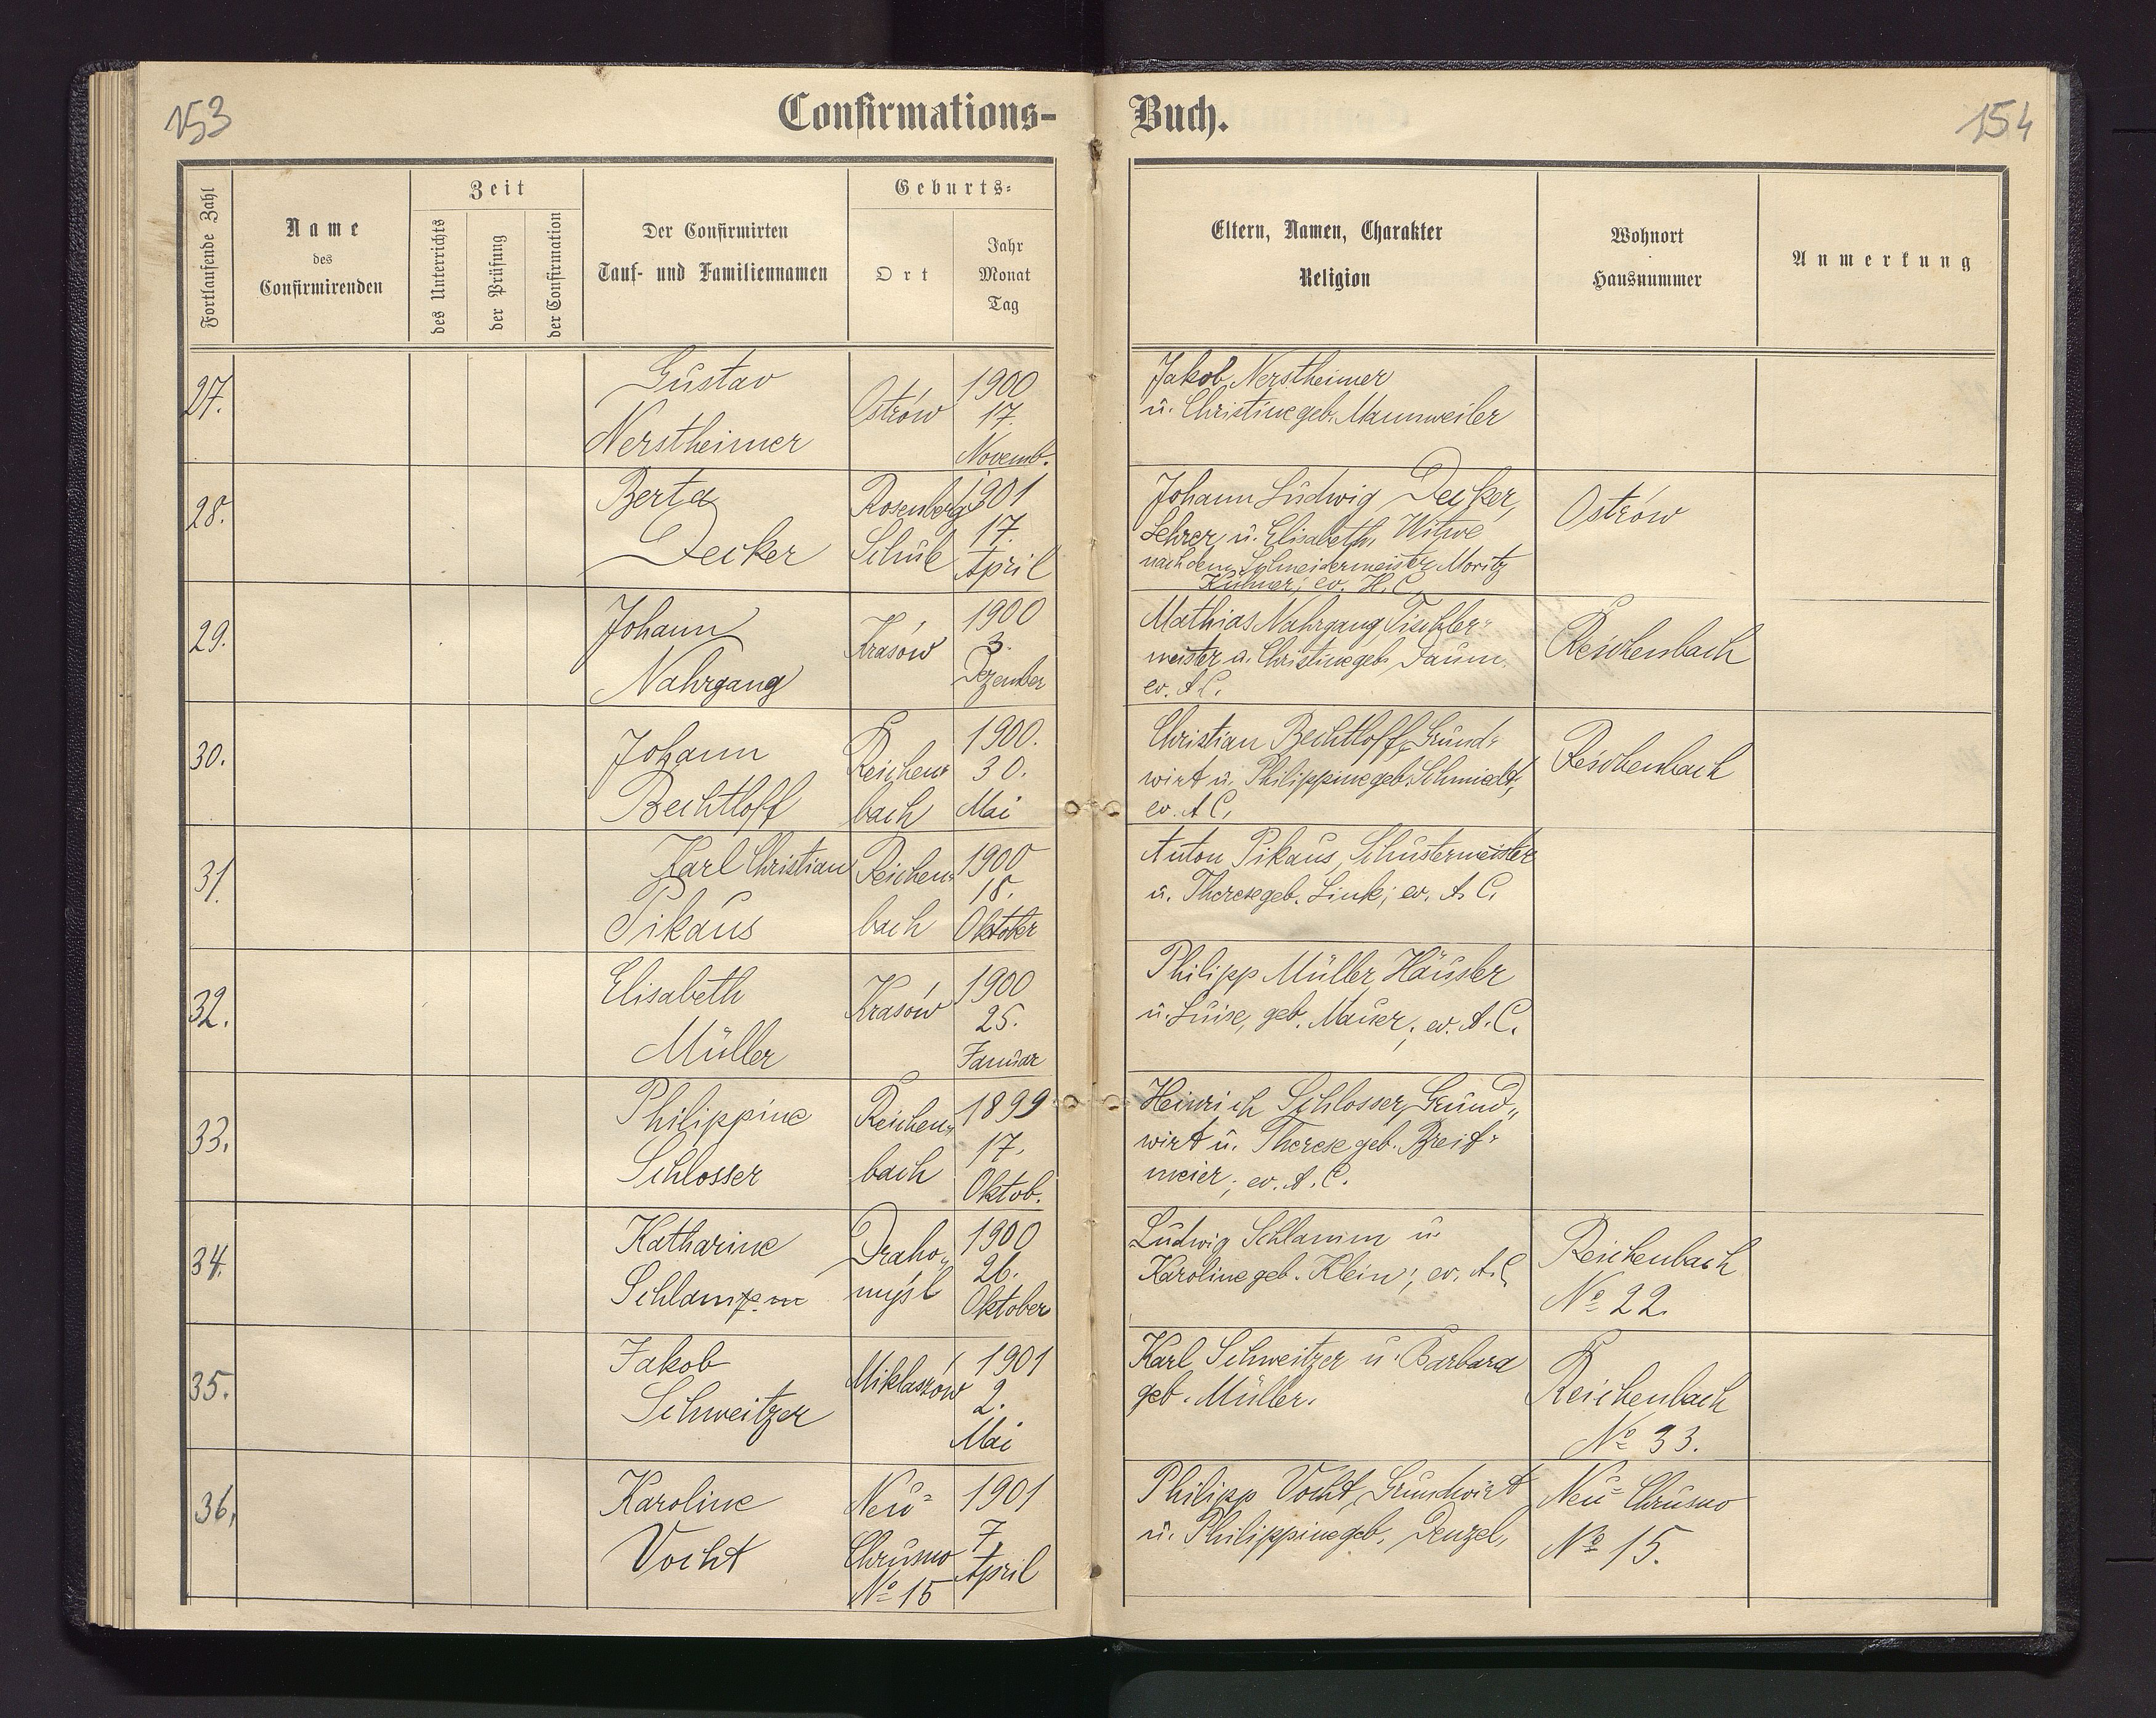 153
Confirmations-
Buch.
154
Fortlaufende Zahl
Name
des
Confirmirenden
Zeit
des Unterrichts
der Prüfung
der Confirmation
Der Confirmirten
Tauf- und Familiennamen
Geburts-
Ort
Jahr
Monat
Tag
Eltern, Namen, Charakter
Religion
Wohnort
Hausnummer
Anmerkung
27.
Gustav
Nerstheimer
Ostrów
1900
17.
Novemb.
Jakob Nerstheimer
u. Christine geb. Mannweiler
28.
Berta
Decker
Rosenberg
Schule
1901
17.
April
Johann Ludwig Decker,
Lehrer u. Elisabeth, Witwe
nach dem Schneidermeister Moritz
ev. H. C.
Ostrów
29.
Johann
Nahrgang
Krasów
1900
3.
Dezember
Mathias Nahrgang Tischler-
meister u. Christine geb. Daum
ev. A C.
Reichenbach
30.
Johann
Bechtloff
Reichen-
bach
1900.
30.
Mai
Christian Bechtloff, Grund-
wirt u. Philippine geb. Schmidt,
ev. A C.
Reichenbach
31.
Karl Christian
Pikaus
Reichen-
bach
1900
18.
Oktober
Anton Pikaus, Schustermeister
u. Therese geb. Link; ev. A. C.
32.
Elisabeth
Müller
Krasów
1900
25.
Januar
Philipp Müller, Häusler
u. Luise, geb. Mauer; ev. A. C.
33.
Philippine
Schlosser
Reichen-
bach
1899
17.
Oktob.
Heinrich Schlosser, Grund-
wirt u. Therese geb. Breit-
meier; ev. A. C.
34.
Katharine
Schlamm
Draho-
myśl
1900
26.
Oktober
Ludwig Schlamm u.
Karoline geb. Klein; ev. A. C.
Reichenbach
No 22.
35.
Jakob
Schweitzer
Miklaszów
1901
2.
Mai
Karl Schweitzer u. Barbara
geb. Müller.
Reichenbach
No 33.
36.
Karoline
Vocht
Neu-
Chrusno
No 15
1901
7
April
Philipp Vocht, Grundwirt
u. Philippine geb. Denzel,
Neu-Chrusno
No 15.